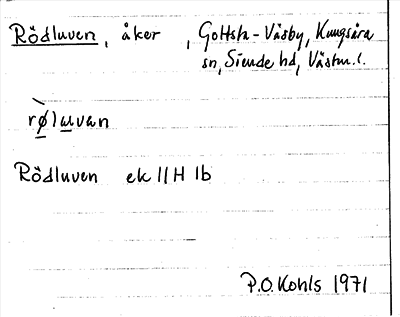 Rödluven, åker, Gottsta-Väsby, Kungsåra
sn, Siende hd, Västm. l.
rø̀luvan
Rödluven ek 11H 1b
P.O. Kohls 1971